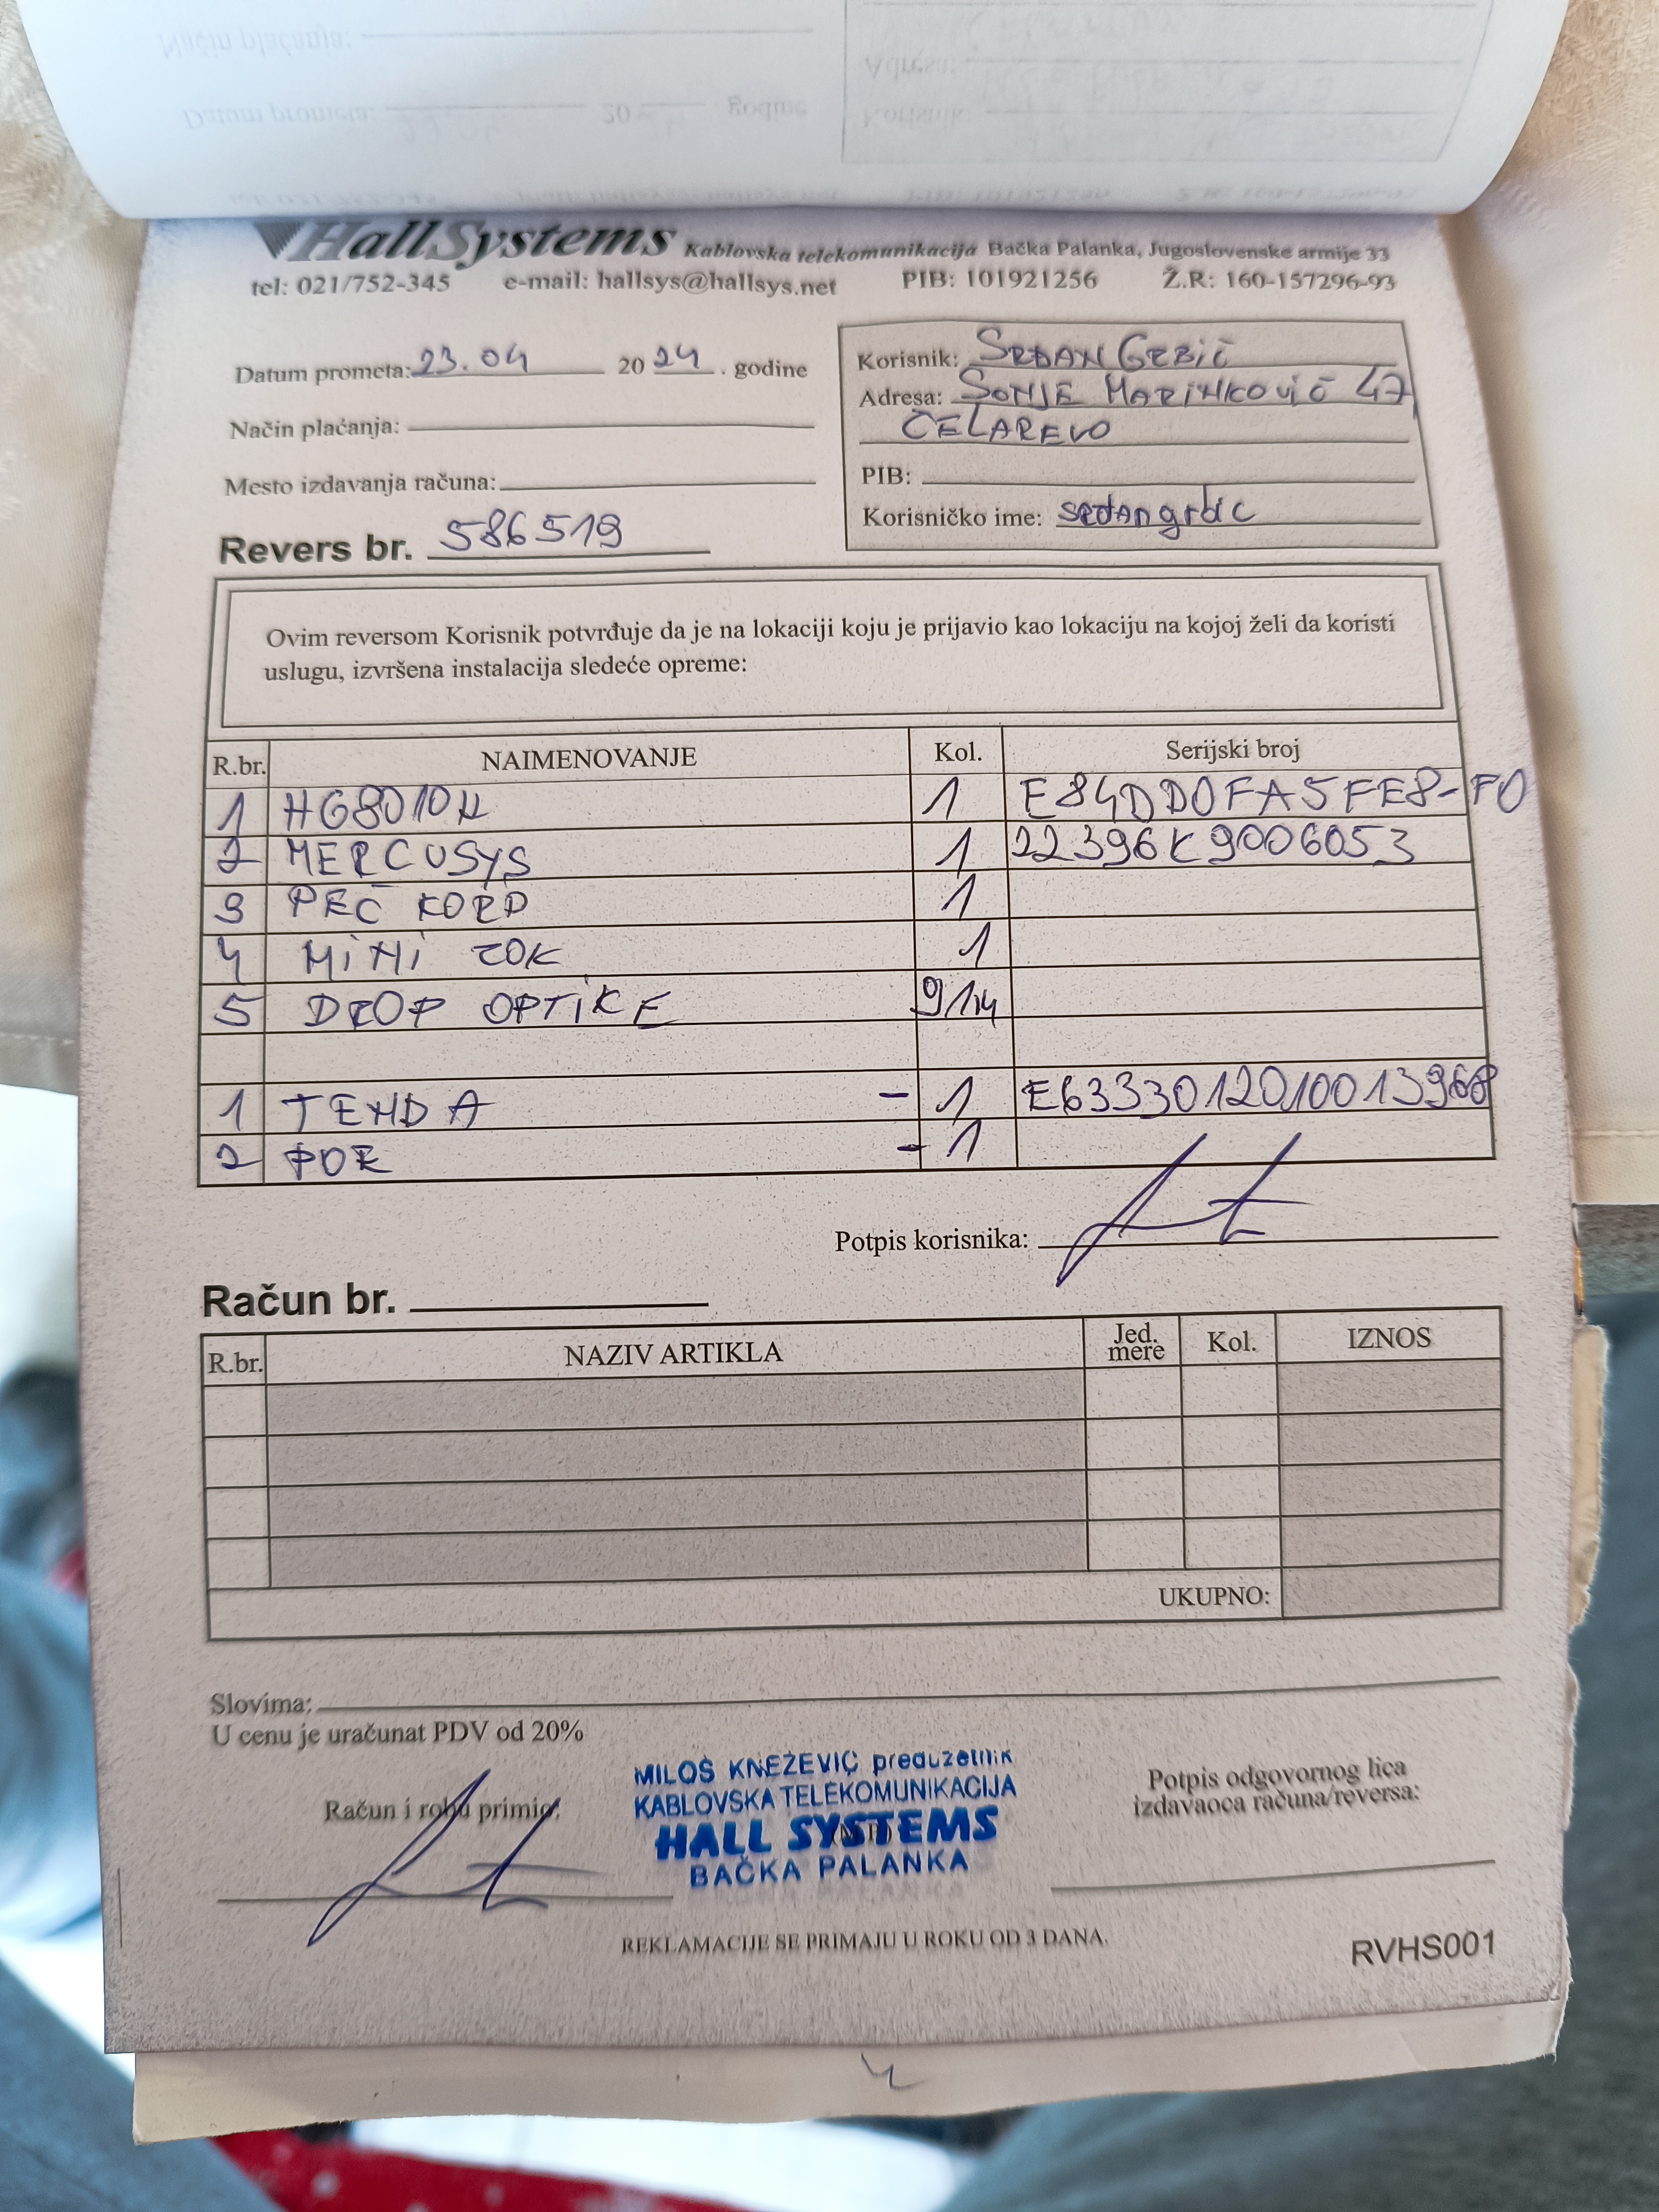 HallSystems Kablovska telekomunikacija Bačka Palanka, Jugoslovenske armije 33
tel: 021/752-345 e-mail: hallsys@hallsys.net PIB: 101921256 Ž.R: 160-157296-93
Datum prometa: 23.04 2024. godine
Način plaćanja:
Mesto izdavanja računa:
Revers br. 586519
Korisnik: SRĐAN GRBIĆ
Adresa: SONJE MARINKOVIĆ 47
ČELAREVO
PIB:
Korisničko ime: srđangrbic
Ovim reversom Korisnik potvrđuje da je na lokaciji koju je prijavio kao lokaciju na kojoj želi da koristi
uslugu, izvršena instalacija sledeće opreme:
R.br. NAIMENOVANJE Kol. Serijski broj
1 HG8010H 1 E84DD0FA5FE8-F0
2 MERCUSYS 1 22396K9006053
3 PEČ KORD 1
4 MINI ZOK 1
5 DROP OPTIKE 91M
1 TENDA - 1 E6333012010013968
2 POE - 1
Potpis korisnika:
Račun br.
R.br. NAZIV ARTIKLA Jed. mere Kol. IZNOS
UKUPNO:
Slovima:
U cenu je uračunat PDV od 20%
Račun i robu primio:
MILOŠ KNEŽEVIĆ preduzetnik
KABLOVSKA TELEKOMUNIKACIJA
HALL SYSTEMS
BAČKA PALANKA
Potpis odgovornog lica
izdavaoca računa/reversa:
REKLAMACIJE SE PRIMAJU U ROKU OD 3 DANA.
RVHS001